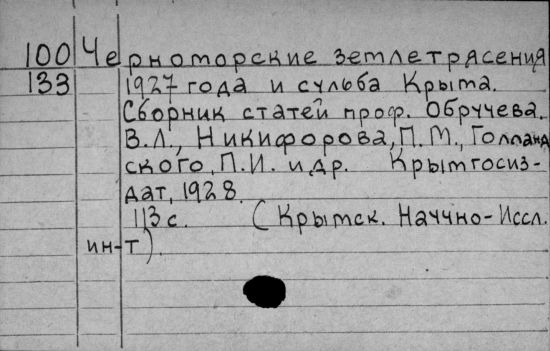 100 Черноморские землетрясения
133 1927 года и судьба Крыма.
Сборник статей проф. Обручева.
В.Л., Никифорова, П.М., Голланд
ского, П.И. и др. Крымгосиз-
дат, 1928.
113 с. (Крымск. Научно-Иссл.
ин-т).